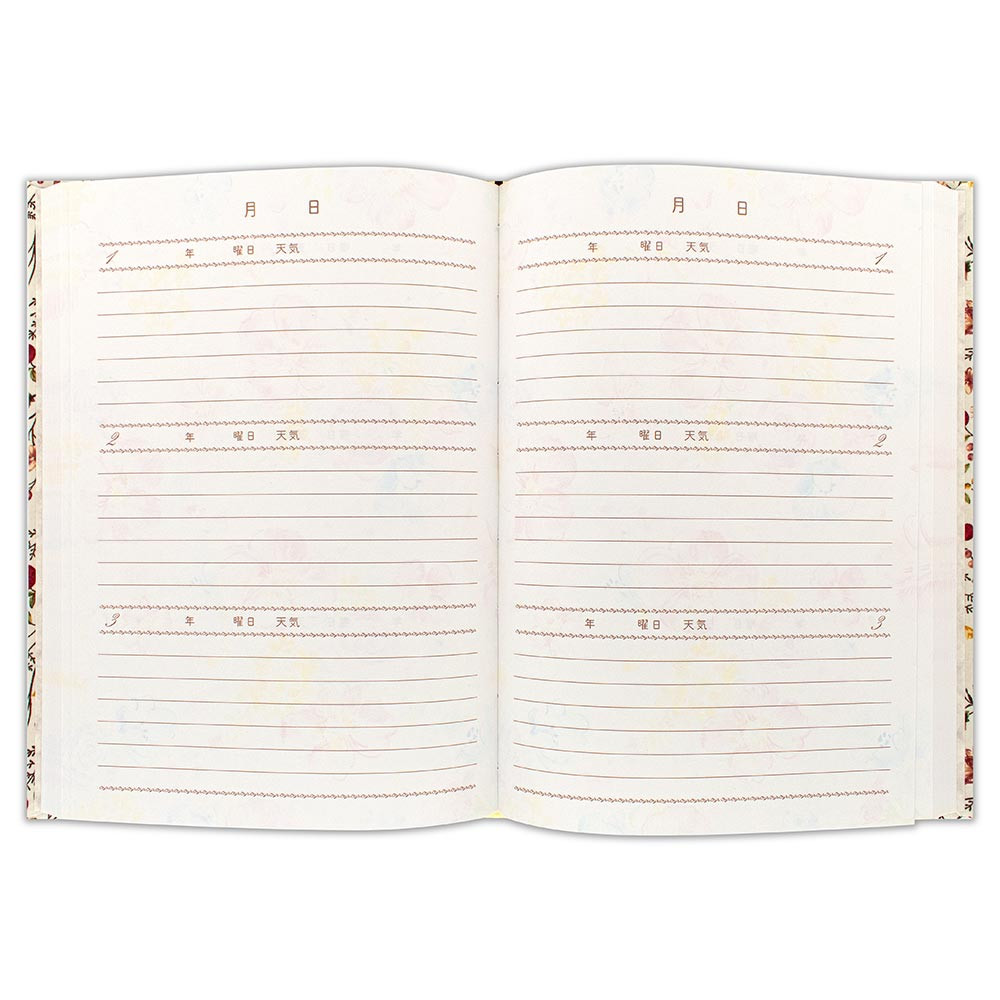 月 日
1 年 曜日 天気
2 年 曜日 天気
3 年 曜日 天気
月 日
年 曜日 天気 1
年 曜日 天気 2
年 曜日 天気 3